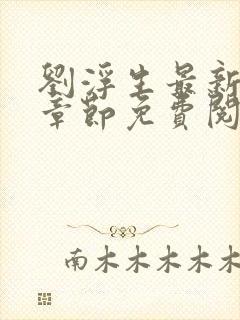 劉浮生最新
章節免費閱
南木木木木木